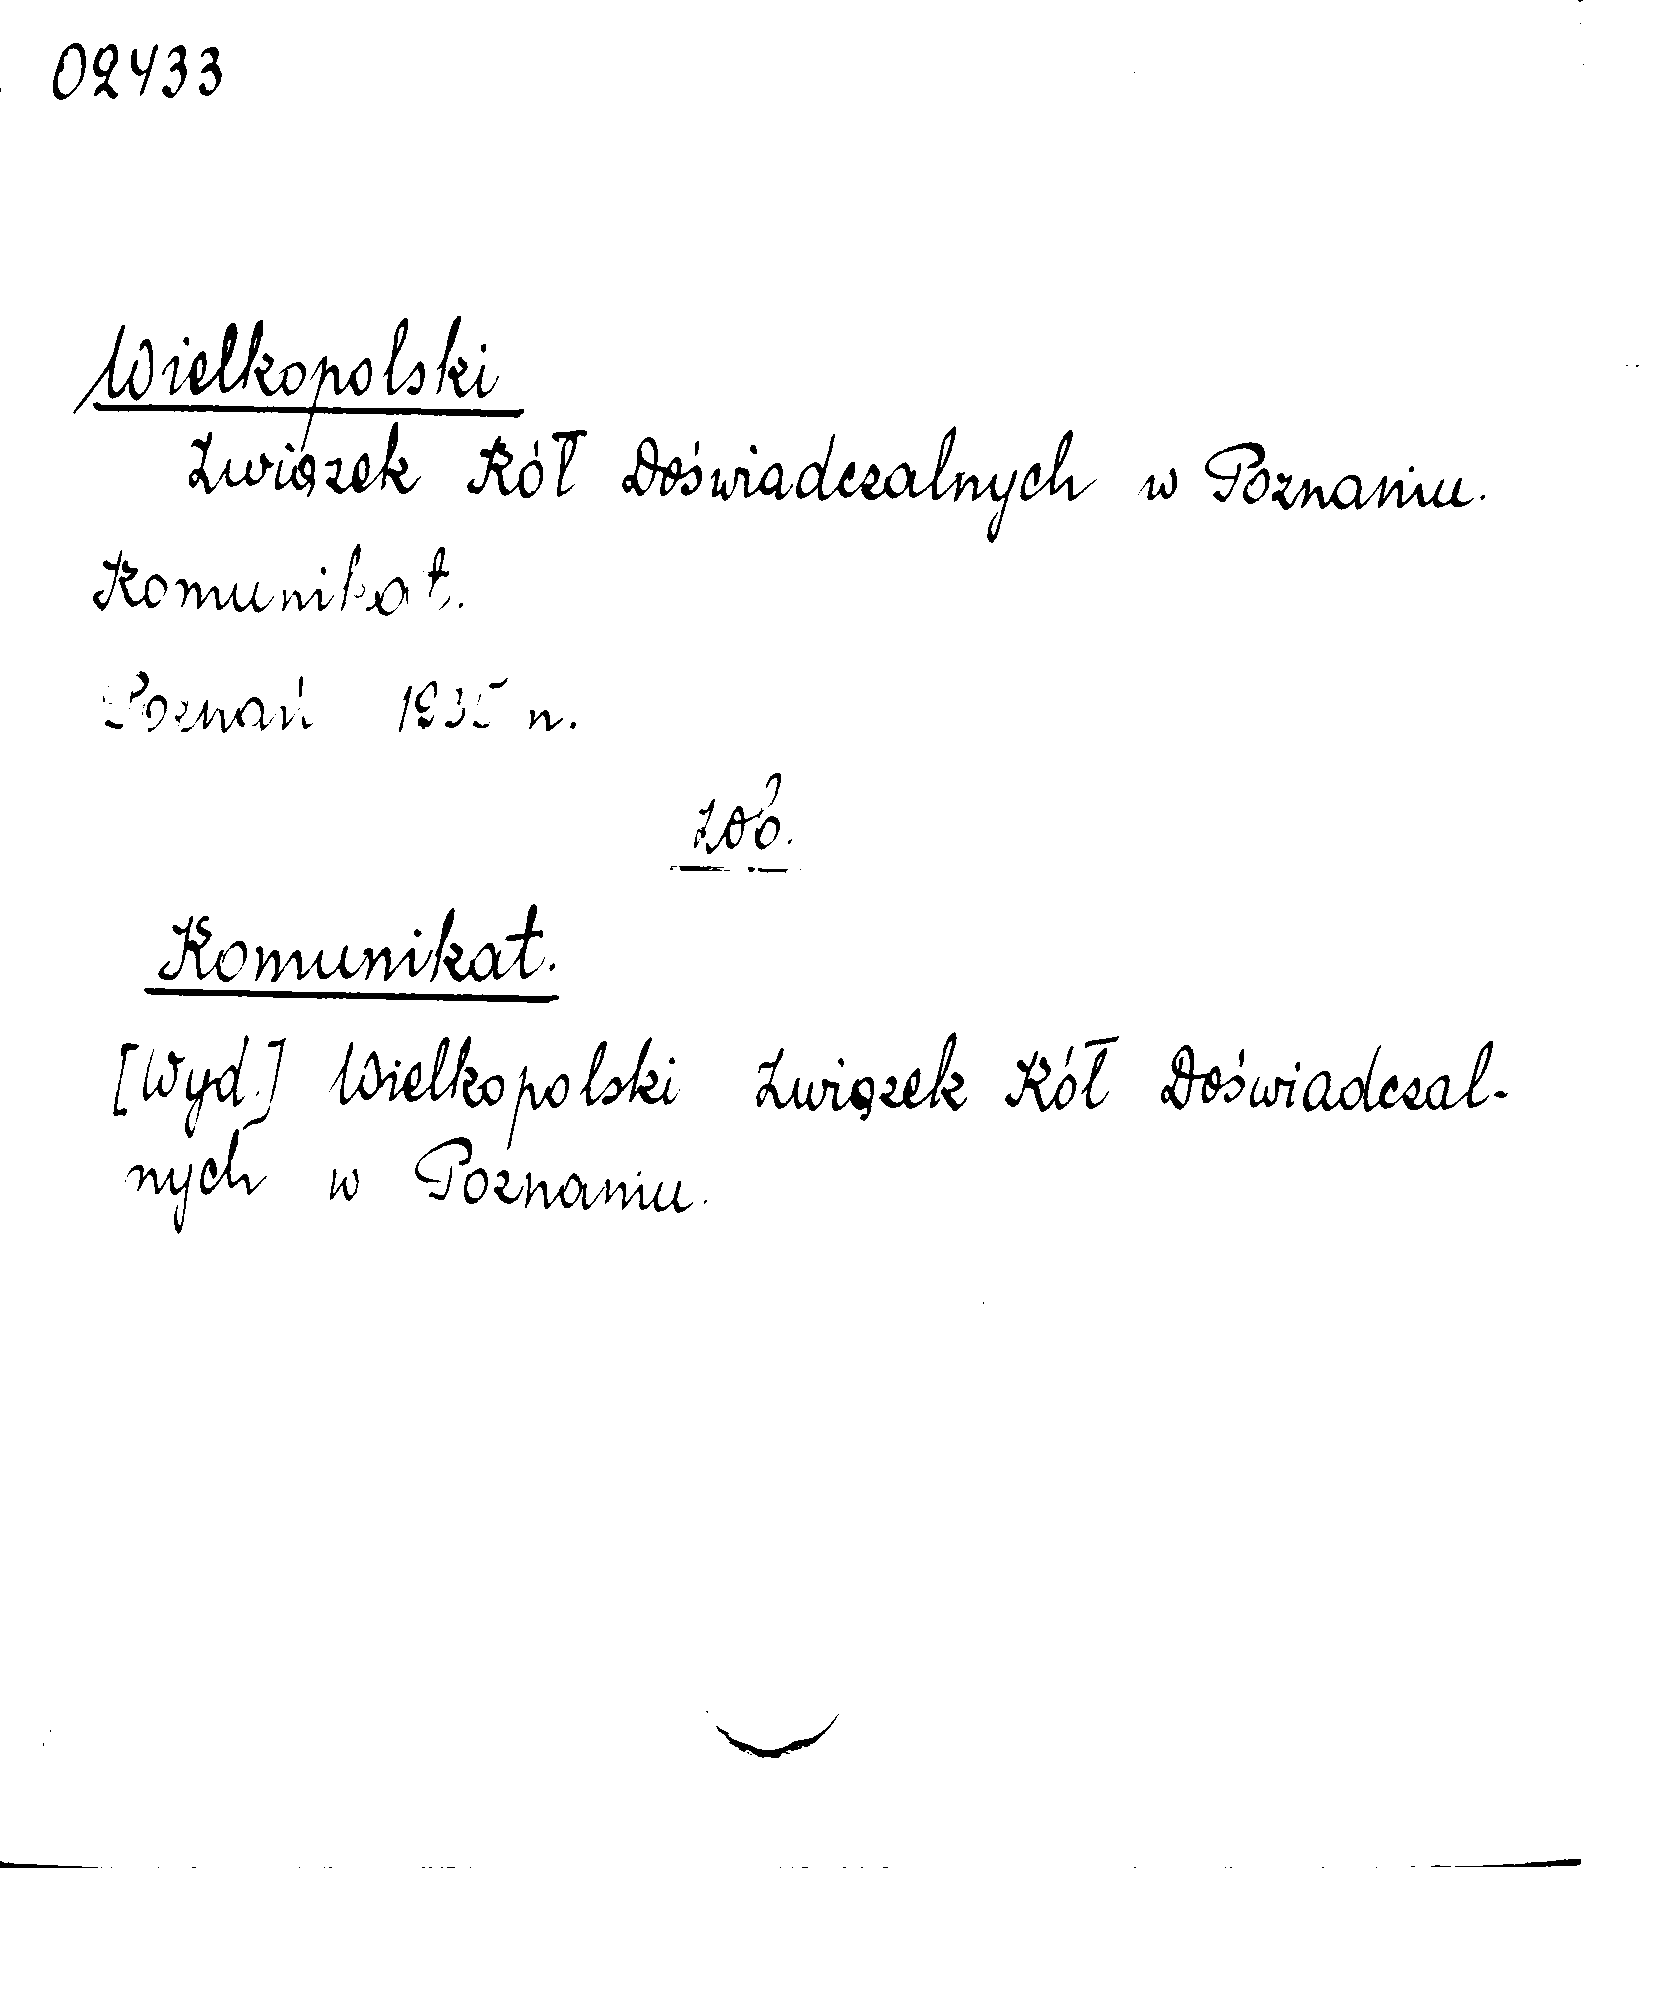 02433
Wielkopolski
Związek Kół Doświadczalnych w Poznaniu.
Komunikat.
Poznań 1935 n.
Zob.
Komunikat.
[Wyd.] Wielkopolski Związek Kół Doświadczal-
nych w Poznaniu.